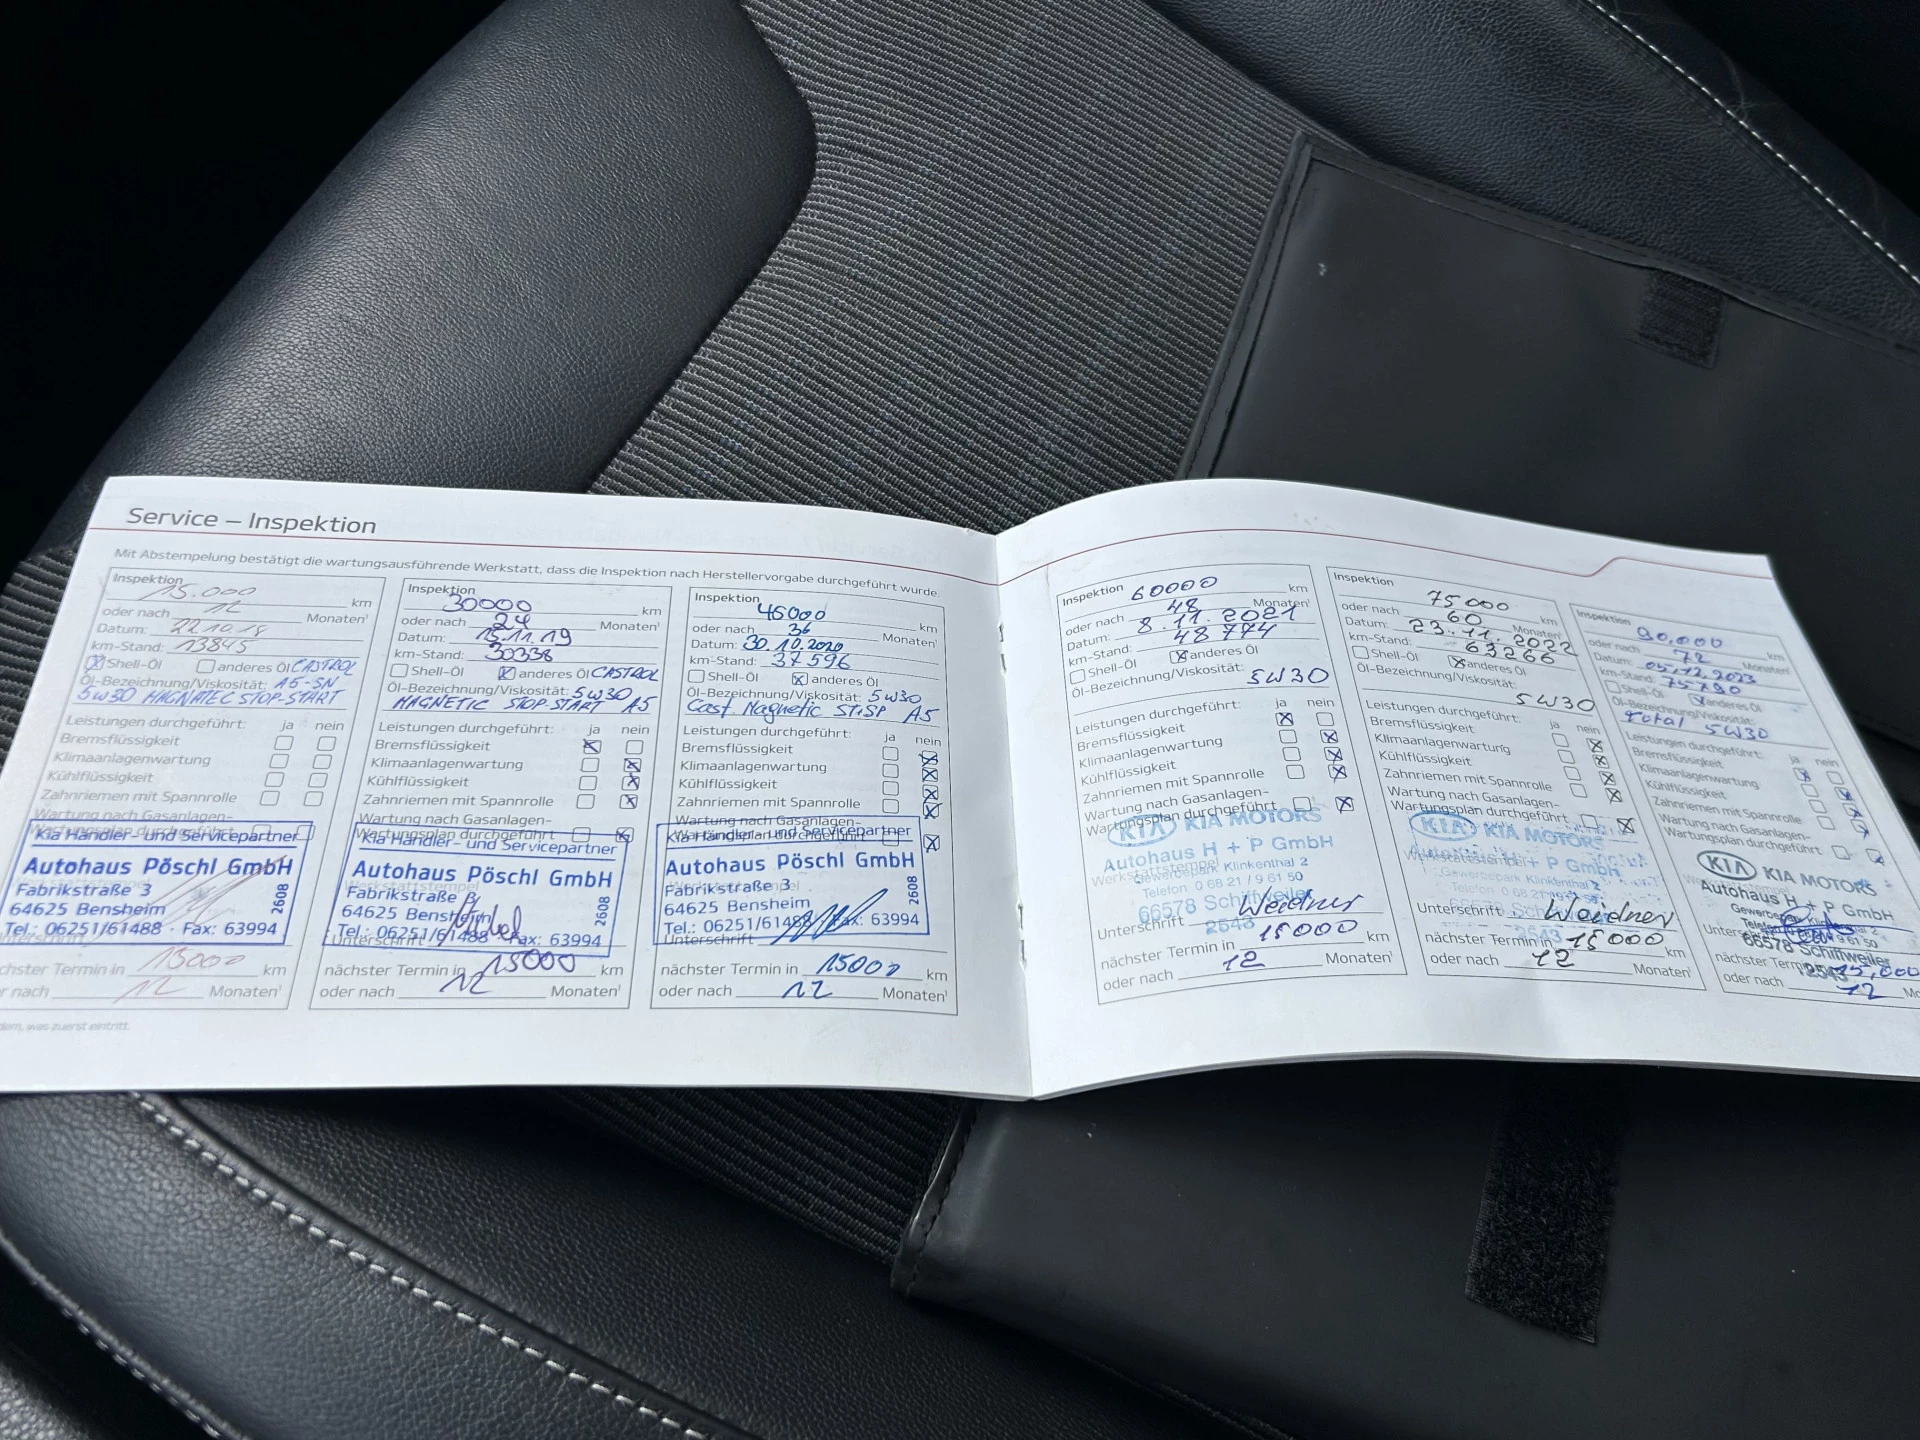 Service – Inspektion
Mit Abstempelung bestätigt die wartungsausführende Werkstatt, dass die Inspektion nach Herstellervorgabe durchgeführt wurde.
Inspektion
15.000 km
oder nach 12 Monaten¹
Datum: 22.10.18
km-Stand: 13845
Shell-Öl anderes Öl CASTROL
Öl-Bezeichnung/Viskosität: A5-SN
5W30 MAGNATEC STOP-START
Leistungen durchgeführt: ja nein
Bremsflüssigkeit
Klimaanlagenwartung
Kühlflüssigkeit
Zahnriemen mit Spannrolle
Wartung nach Gasanlagen-
Wartungsplan durchgeführt
Kia Händler- und Servicepartner
Autohaus Pöschl GmbH
Fabrikstraße 3
64625 Bensheim
Tel.: 06251/61488 · Fax: 63994
2608
Unterschrift
nächster Termin in 15000 km
oder nach 12 Monaten¹
dem, was zuerst eintritt.
Inspektion
30000 km
oder nach 24 Monaten¹
Datum: 15.11.19
km-Stand: 30338
Shell-Öl anderes Öl CASTROL
Öl-Bezeichnung/Viskosität: 5W30
MAGNETIC STOP-START A5
Leistungen durchgeführt: ja nein
Bremsflüssigkeit
Klimaanlagenwartung
Kühlflüssigkeit
Zahnriemen mit Spannrolle
Wartung nach Gasanlagen-
Wartungsplan durchgeführt
Kia Händler- und Servicepartner
Autohaus Pöschl GmbH
Werkstattstempel
Fabrikstraße 3
64625 Bensheim
Tel.: 06251/61488 Fax: 63994
2608
Unterschrift
nächster Termin in 15000 km
oder nach 12 Monaten¹
Inspektion
45000 km
oder nach 36 Monaten¹
Datum: 30.10.2020
km-Stand: 37596
Shell-Öl anderes Öl
Öl-Bezeichnung/Viskosität: 5W30
Cast. Magnetic ST.SP A5
Leistungen durchgeführt: ja nein
Bremsflüssigkeit
Klimaanlagenwartung
Kühlflüssigkeit
Zahnriemen mit Spannrolle
Wartung nach Gasanlagen-
Wartungsplan durchgeführt
Kia Händler- und Servicepartner
Autohaus Pöschl GmbH
Fabrikstraße 3
64625 Bensheim
Tel.: 06251/61488 Fax: 63994
2608
Unterschrift
nächster Termin in 15000 km
oder nach 12 Monaten¹
Inspektion 60000 km
oder nach 48 Monaten¹
Datum: 8.11.2021
km-Stand: 48774
Shell-Öl anderes Öl
Öl-Bezeichnung/Viskosität:
5W30
Leistungen durchgeführt: ja nein
Bremsflüssigkeit
Klimaanlagenwartung
Kühlflüssigkeit
Zahnriemen mit Spannrolle
Wartung nach Gasanlagen-
Wartungsplan durchgeführt
KIA KIA MOTORS
Autohaus H + P GmbH
Werkstattstempel
Gewerbepark Klinkenthal 2
Telefon 0 68 21 / 9 61 50
66578 Schiffweiler
2543
Unterschrift Weidner
nächster Termin in 15000 km
oder nach 12 Monaten¹
Inspektion
75000 km
oder nach 60 Monaten¹
Datum: 23.11.2022
km-Stand: 63266
Shell-Öl anderes Öl
Öl-Bezeichnung/Viskosität:
5W30
Leistungen durchgeführt: ja nein
Bremsflüssigkeit
Klimaanlagenwartung
Kühlflüssigkeit
Zahnriemen mit Spannrolle
Wartung nach Gasanlagen-
Wartungsplan durchgeführt
KIA KIA MOTORS
Autohaus H + P GmbH
Werkstattstempel
Gewerbepark Klinkenthal 2
2543
Unterschrift Weidner
nächster Termin in 15000 km
oder nach 12 Monaten¹
Inspektion
90.000 km
oder nach 72 Monaten¹
Datum: 05.12.2023
km-Stand: 75790
Shell-Öl anderes Öl
Öl-Bezeichnung/Viskosität:
Total 5W30
Leistungen durchgeführt: ja nein
Bremsflüssigkeit
Klimaanlagenwartung
Kühlflüssigkeit
Zahnriemen mit Spannrolle
Wartung nach Gasanlagen-
Wartungsplan durchgeführt
KIA KIA MOTORS
Autohaus H + P GmbH
66578 Schiffweiler
2543
nächster Termin 15.000
oder nach 12